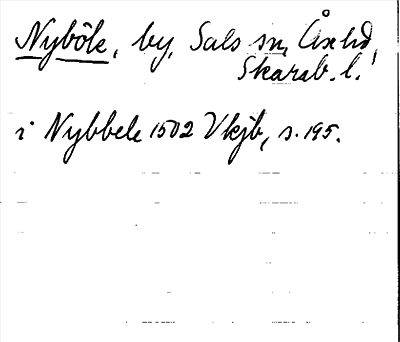 Nyböle, by, Sals sn, Åse hd,
Skarab. l.
i Nybbele 1502 Vkjb, s. 195.